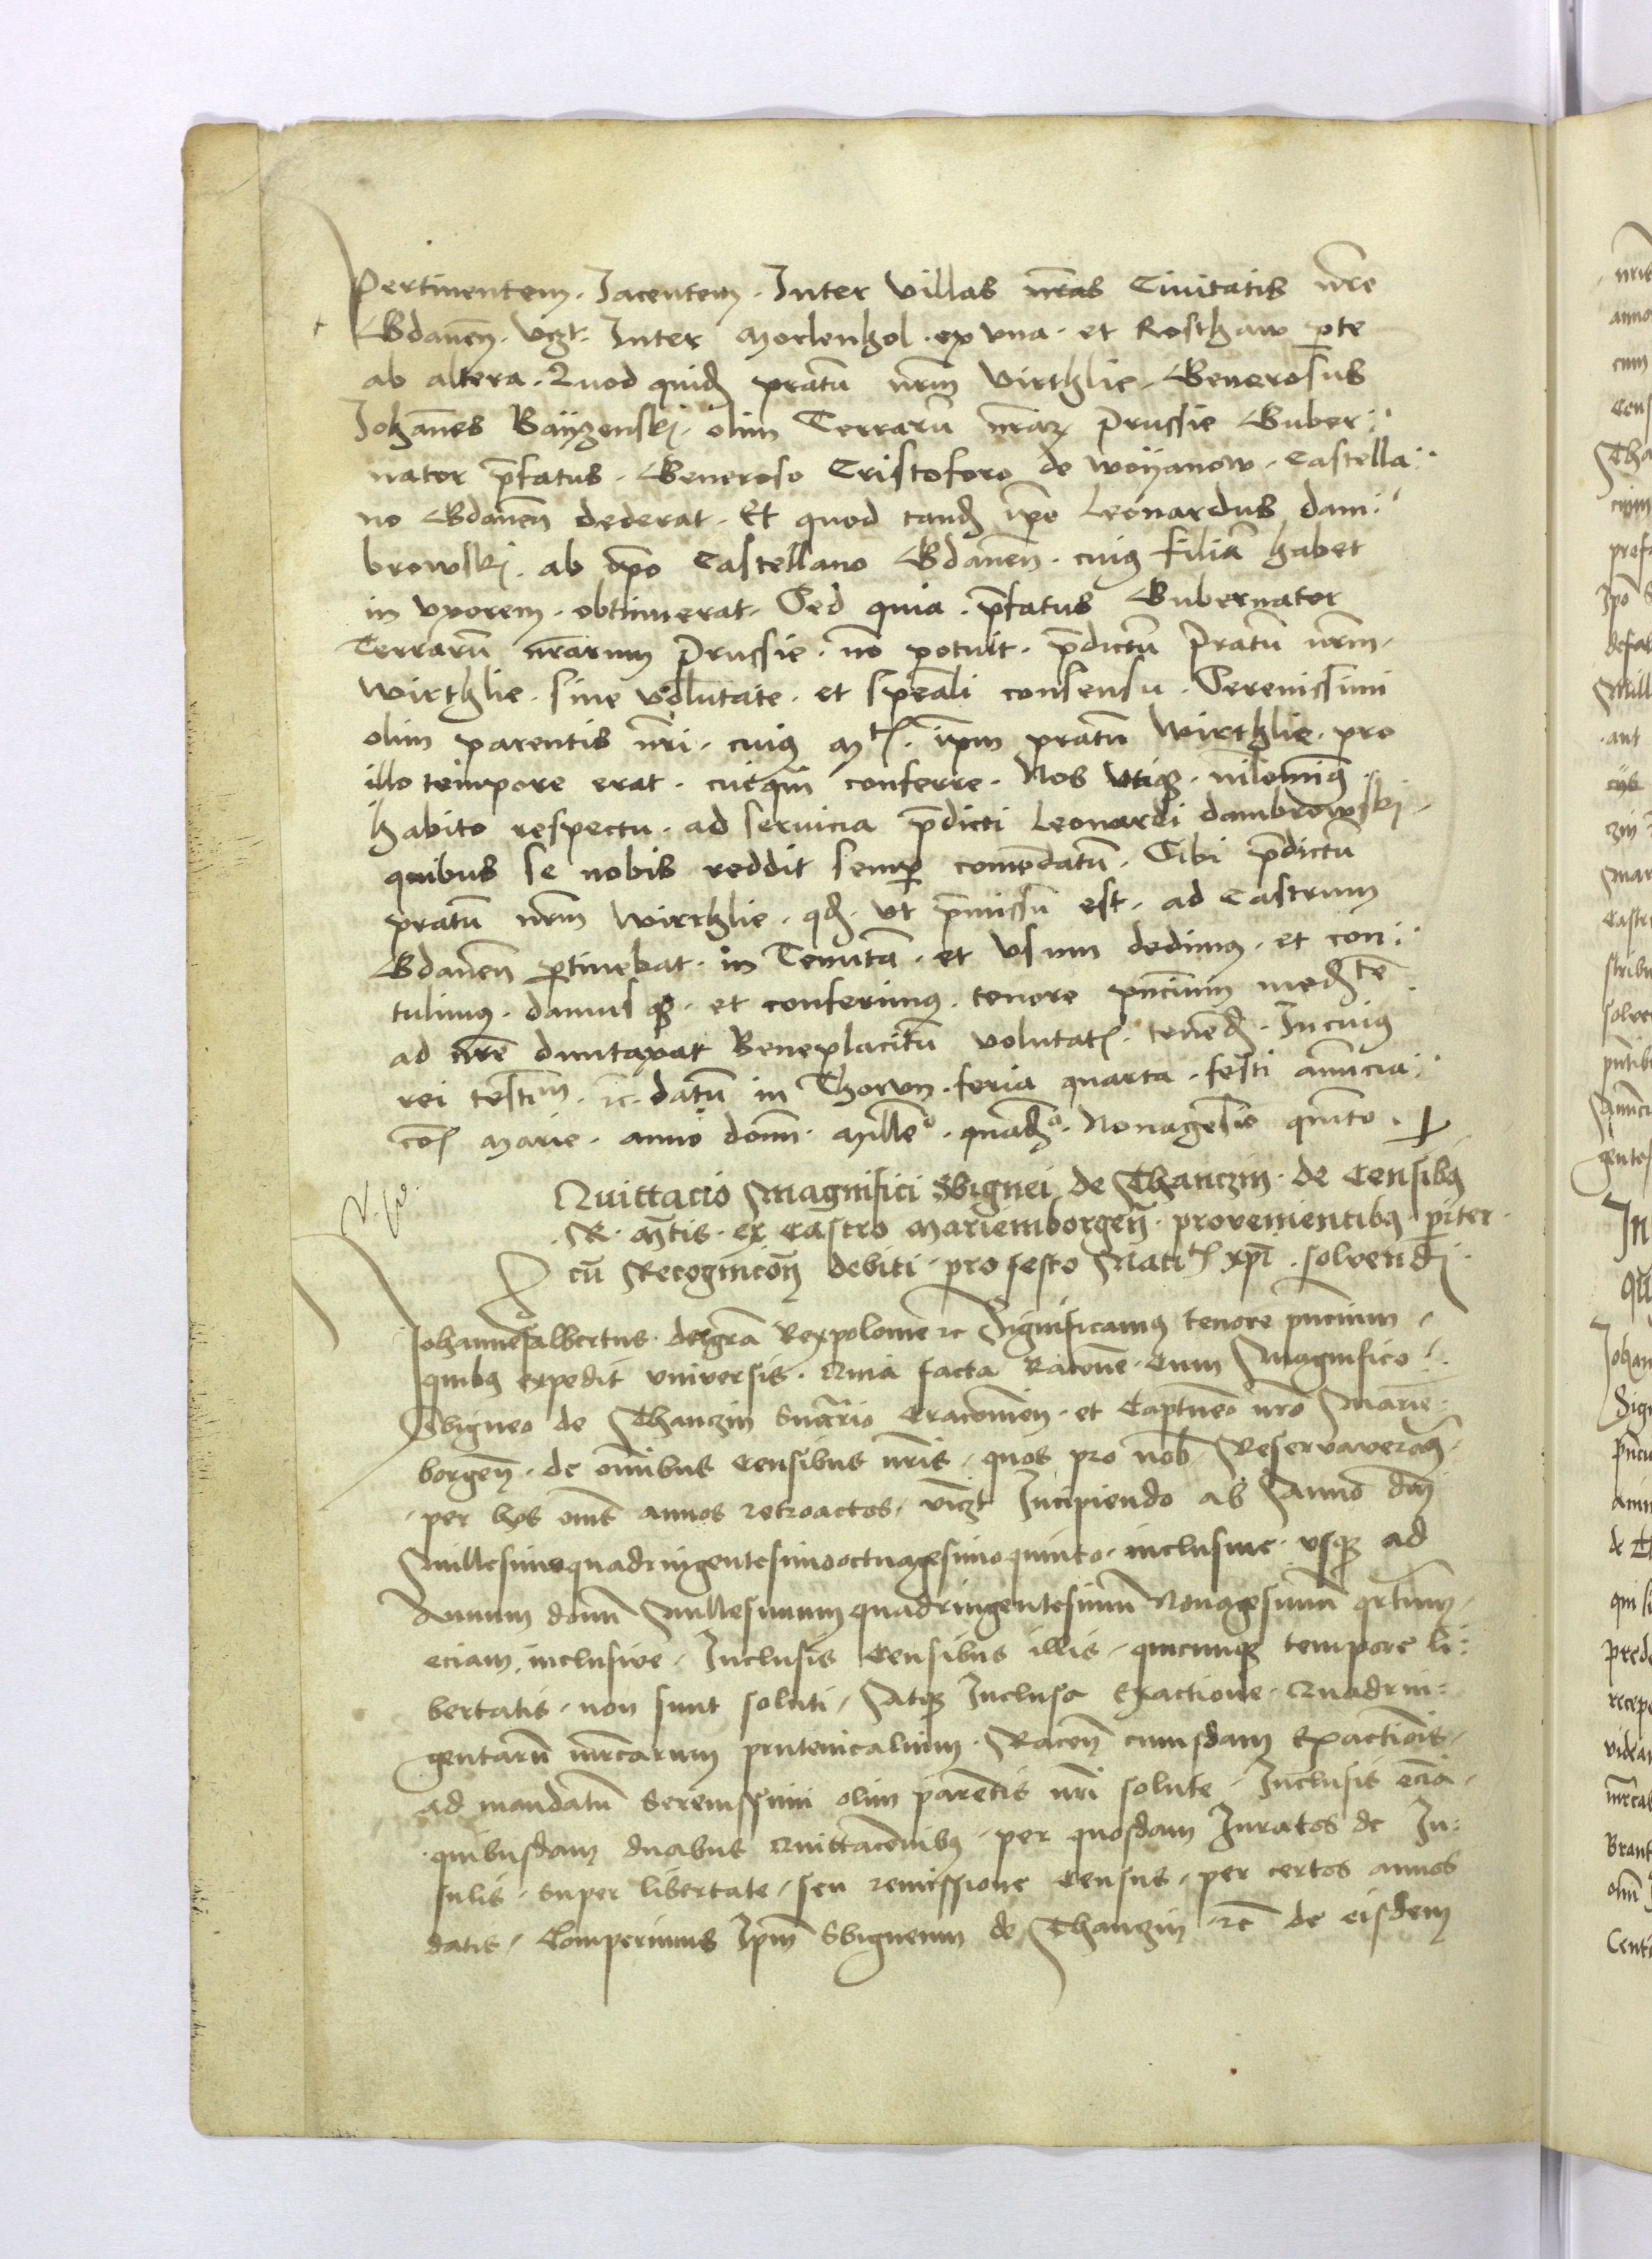 Pertinentem. Jacentem. Inter villas nr̄as Civitatis nr̄e
Gdanen̄. vꝫt. Inter Morlenhol. ex vna. et Rosthaw p̱te
ab altera. Quod quid̄ pratū nrm̄ Virthlie. Generosus
Johānes Bayzenskj. olim Terrarū nrāꝝ Prussie Guber:
nator p̄fatus. Generoso Cristoforo de Woyanow. Castella:
no Gdanen̄ dederat. Et quod tand̄ ip̄e Leonardus dam:
browskj. ab ip̄o Castellano Gdanen̄. cuiꝰ filiā habet
in vxorem. obtinuerat. Sed quia. p̄fatus Gubernator
Terrarū nr̄arum Prussie. nō potuit. p̄dictū Pratū nrm̄.
Wirthlie. sine volūtate. et spēali consensu. Serenissimi
olim parentis nr̄i. cuiꝰ Mtꝭ. ip̄m pratū Wirthlie. pro
illo tempore erat. cuiq̄m conferre. Nos vtiqꝫ. nilominꝰ.
habito respectu. ad servicia p̄dicti Leonardi dambrowskj.
quibus se nobis reddit semp̱ comēdatū. Sibi p̄dictū
pratū nrm̄ Wirthlie. qd̄. vt p̄missū est. ad Castrum
Gdanen̄ p̱tinebat. in Tenutā. et vsum dedimꝰ. et con:
tulimꝰ. damusqꝫ. et conferimꝰ. tenore pn̄cium med̄te.
ad nr̄e duntaxat Beneplacitū volūtatꝭ. tened̄. In cuiꝰ
rei testim. ⁊c̄. datū in Thorun. feria quarta. festi anūncia:
cōꝭ Marie. anno domī. Mille⁰. quad⁰. Nonagesīo quīto.
Quittacio Magnifici Sbignei de Thanczin. de Censibꝰ
R. M̄tis. ex Castro Mariemborgen̄. provenientibꝰ p̱iter
cū Recognicōn̄ debiti. pro festo Natitꝭ xp̄i. solvendj
Johannesalbertus. deigrā Rexpolonie ⁊c Significamꝰ tenore pn̄cium
quibꝰ expedit vniversis. Quia facta Racōne. Cum Magnifico
Sbigneo de Thanczin Succ̄ario Cracovien̄. et Capitneo nr̄o Marie:
borgen̄. de om̄ibus Censibus nr̄is. quos pro nob̄ Reservaveram̄.
per hos om̄s annos retroactos. vicꝫt Incipiendo ab Anno dn̄i
Millesimoquadringentesimooctuagesimoquinto. inclusive. vsqꝫ ad
Annum domī Millesimumquadringentesimū Nonagesimū qrtum.
eciam inclusive. Inclusis Censibus illis. quicunqꝫ tempore li:
bertatis. non sunt soluti. Atqꝫ Inclusa Exactione. Quadrin:
gentarū mrcarum prutenicalium. Racōn̄ cuiusdam Exactionis.
ad mandatū Serenissimi olim parētis nr̄i solute. Inclusis ecīa.
quibusdam duabus Quittacōnibꝰ. per quosdam Juratos de In:
sulis. super libertate. seu remissione Census. per certos annos
datis. Comperimus Ip̄m Sbigneum de Thanczin ⁊c̄ de eisdem